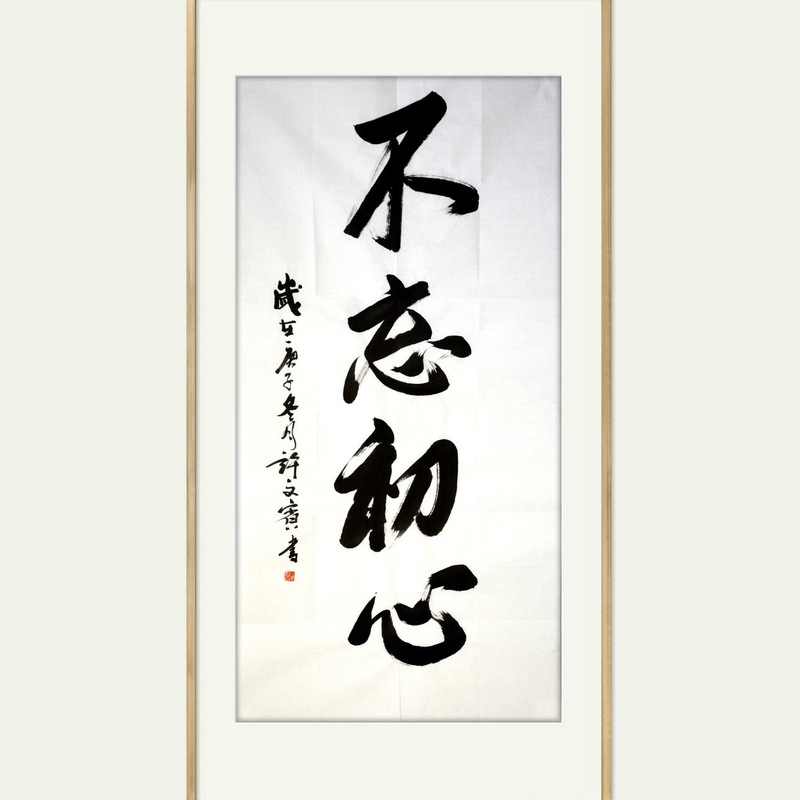 不忘初心
歲在庚子冬月許文賓書